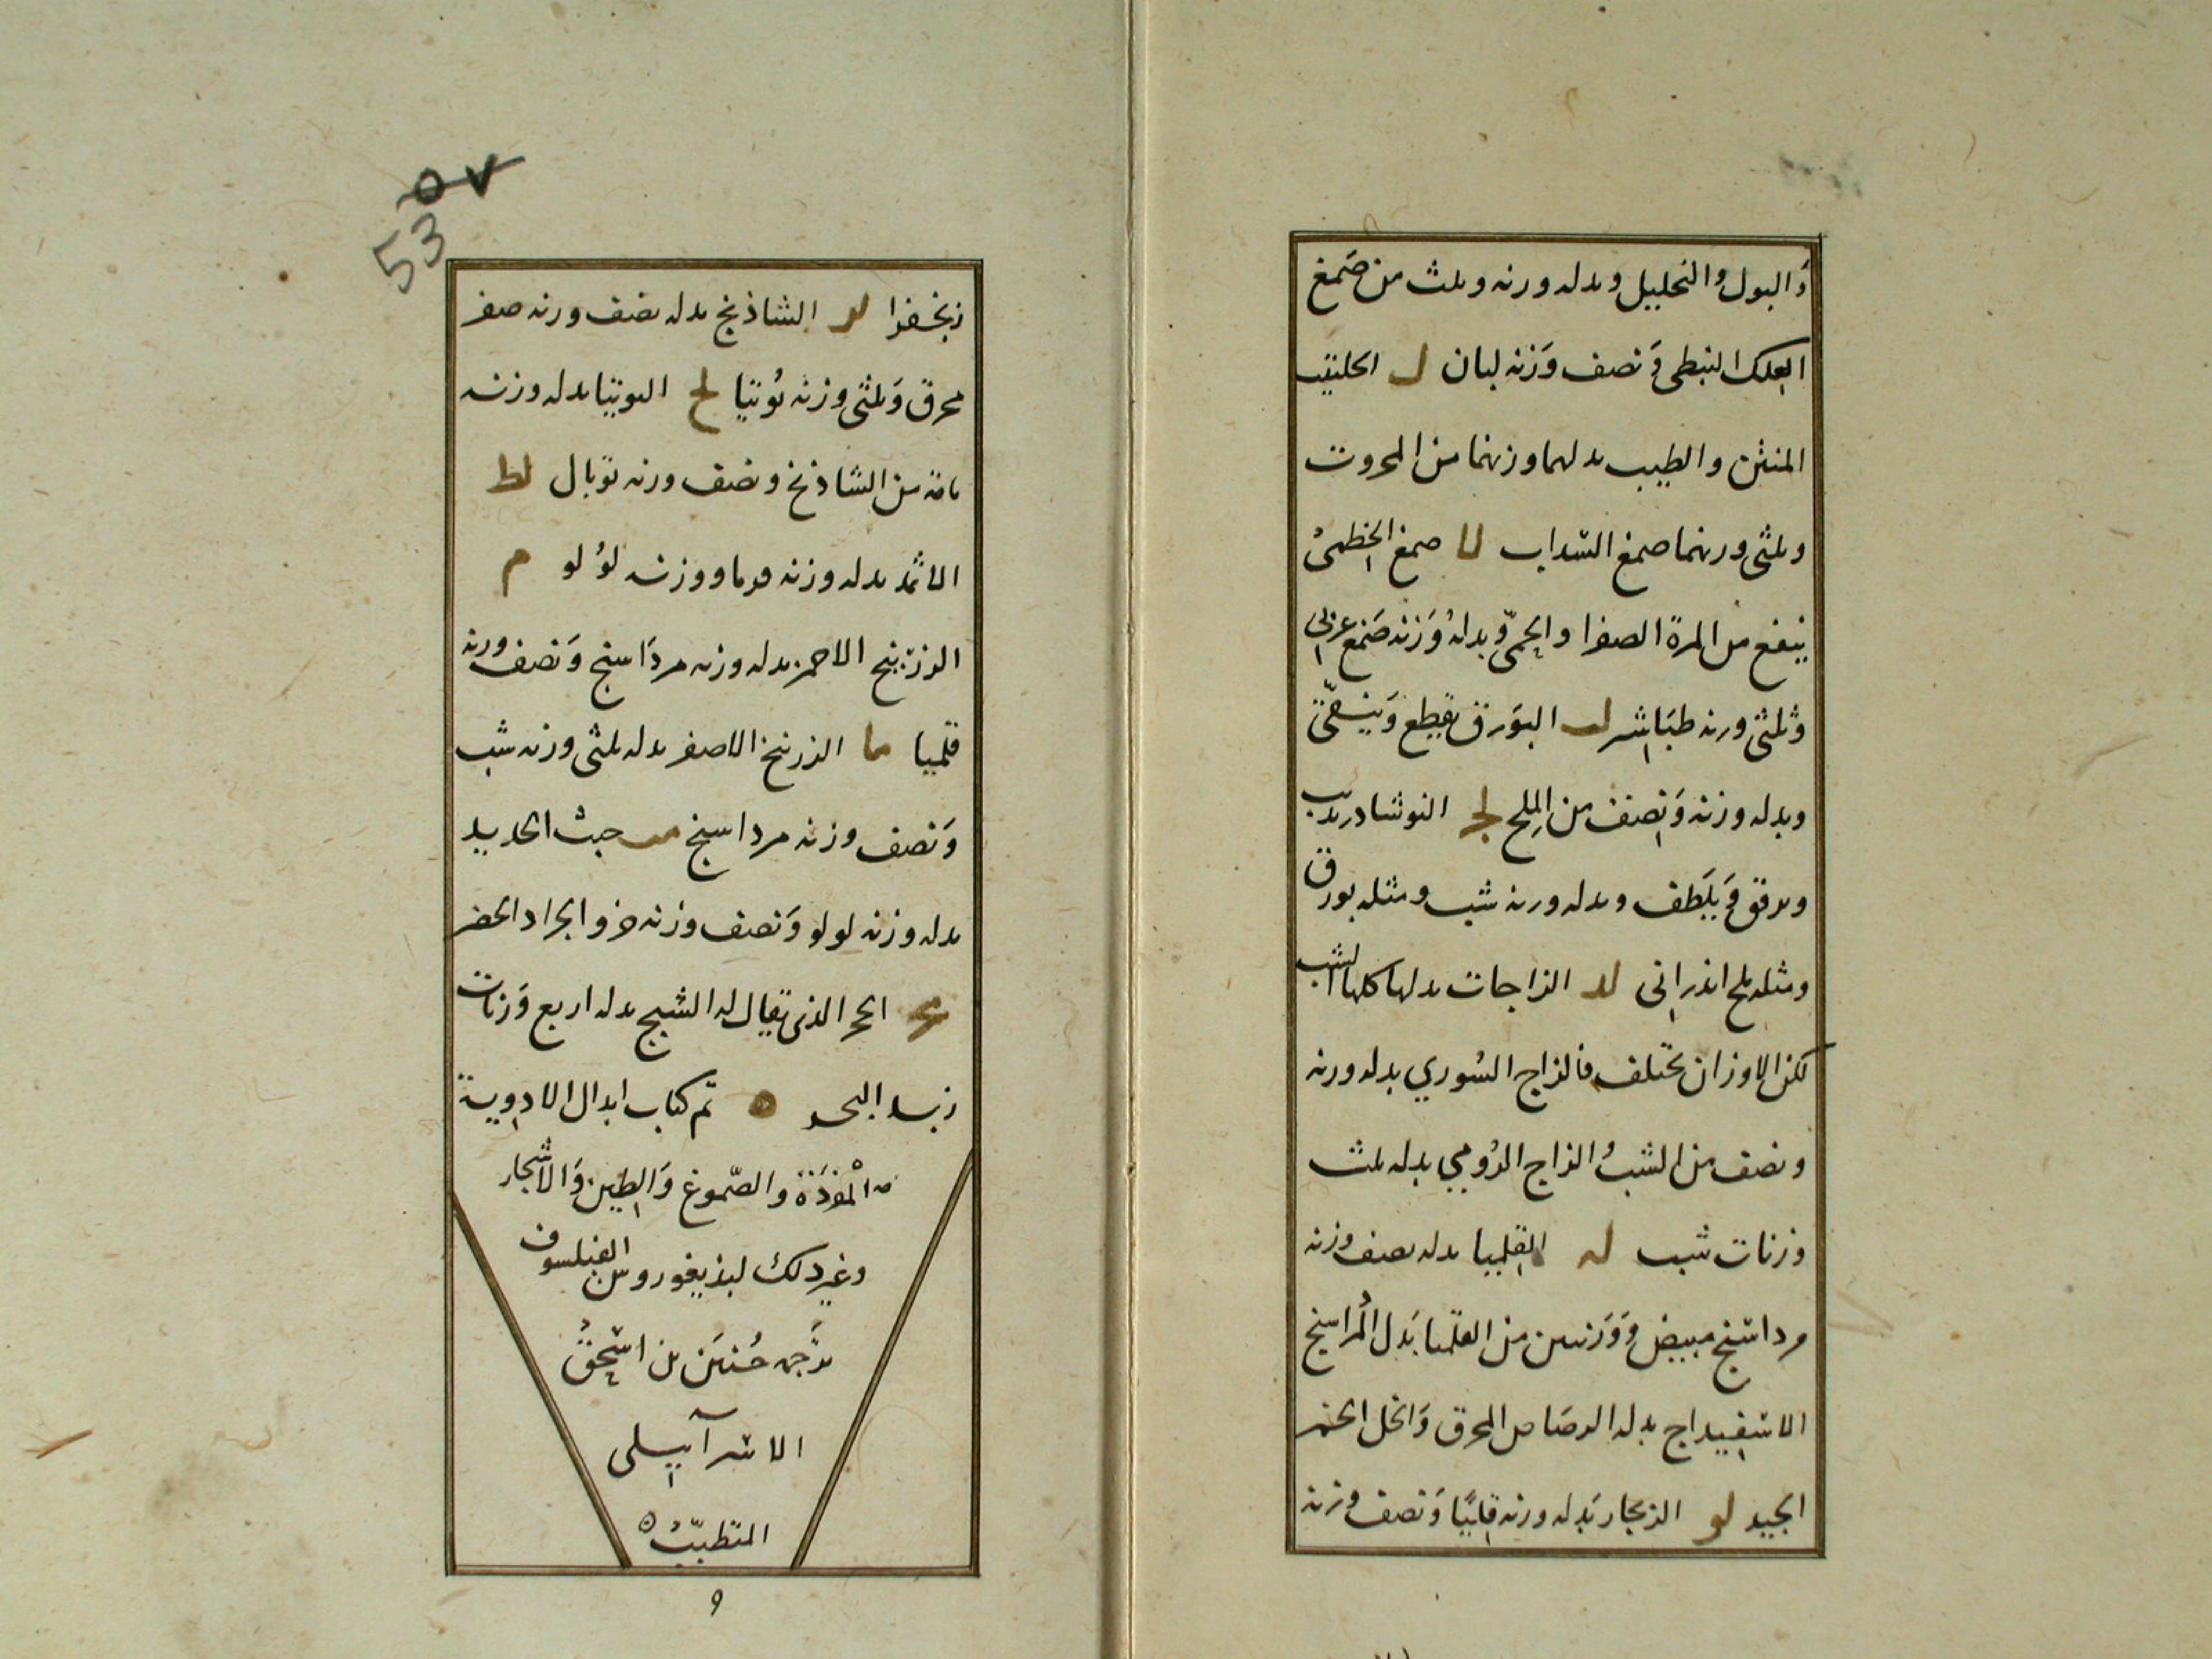 دَ البول والتحليل وبدله وزنه وثلث من صَمغ
العلك النبطي وَنصف وَزنه لبان ل الحلتيت
المنتن والطيب بدلهما وزنهما من المحروت
وثلثى وزنهما صمغ السداب لا صمغ الخطمىُ
ينفع من المرة الصفرا والحمّى وبدلهُ وَزنه صَمغ عربى
وثلثى وزنه طبَاشير لب البوَرق يقطع وَينقّى
وبدله وزنه وَنصف من المِلح لج النوشادر يذيب
ويرقق وَيلَطف وبدله وزنه شب ومثله بورق
ومثله ملح اندرانى لد الزاجات بدلها كلها الشب
لكن الاوزان تختلف فالزاج السُوري بدله وزنه
ونصف من الشبُ الزاج الرُومي بدله ثلث
وزنات شب له القليميا بدله نصف وزنه
مرداسنج مبيض وَوَزنين من القلميا بَدل المُرداسنج
الاسفيداج بدله الرصَاص المحرق وَالخل الخمر
الجيد لو الزنجار بَدله وزنه قليميَا وَنصف وزنه
زنجفرا لز الشاذنج بدله نصف وزنه صفر
محرق وَثلثى وزنه تُوتيا لح التوتيا بدله وزنه
مامة من الشاذنج ونصف وزنه توبال لط
الاثمد بدله وزنه ووزنه لؤلو م
الزرنيخ الاحمر بدله وزنه مردَاسنج وَنصف وزنه
قلميا ما الزرنيخ الاصفر بدله ثلثى وزنه شب
وَنصف وزنه مرداسنج مب خبث الحديد
بدله وزنه لولو وَنصف وزنه خرو الجراد الخضر
مج الحجر الذى يقال له الشبج بدله اربع وَزنات
زبد البحر تم كتاب ابدال الادوية
المُفرَدَة والصّموغ وَالطين وَالاشجار
وغير ذلك لبديغوروس الفيلسوف
ترجمه حُنين بن اسحقُ
الاسرآييلى
المتطببُ
9
53
٥٧